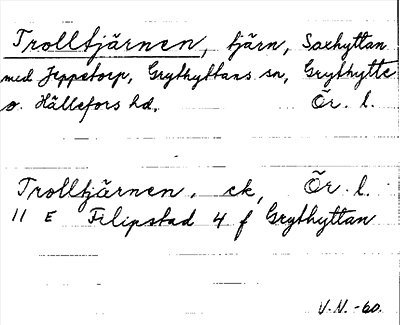 Trolltjärnen, tjärn, Saxhyttan
med Jeppetorp, Grythyttans sn, Grythytte
o. Hällefors hd. Ör. l.
Trolltjärnen, ek, Ör. l.
11 E Filipstad 4 f Grythyttan
V.N. -60.